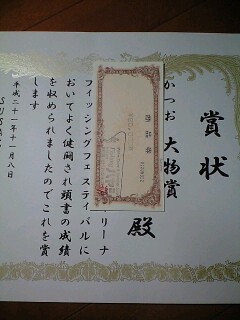 賞状
かつお 大物賞
殿
商品券
リーナ
フィッシングフェスティバルに
おいてよく健闘され頭書の成績
を収められましたのでこれを賞
します
平成二十一年十一月八日